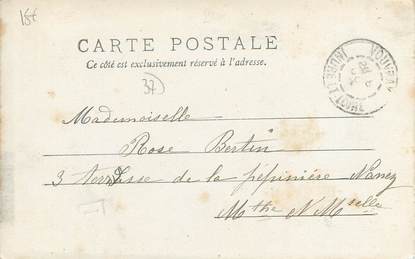 15t
CARTE POSTALE
Ce côté est exclusivement réservé à l'adresse.
37
VOUVRAY
INDRE ET LOIRE
Mademoiselle
Rose Bertin
3 Terrasse de la pépinière Nancy
Mthe N Mselle